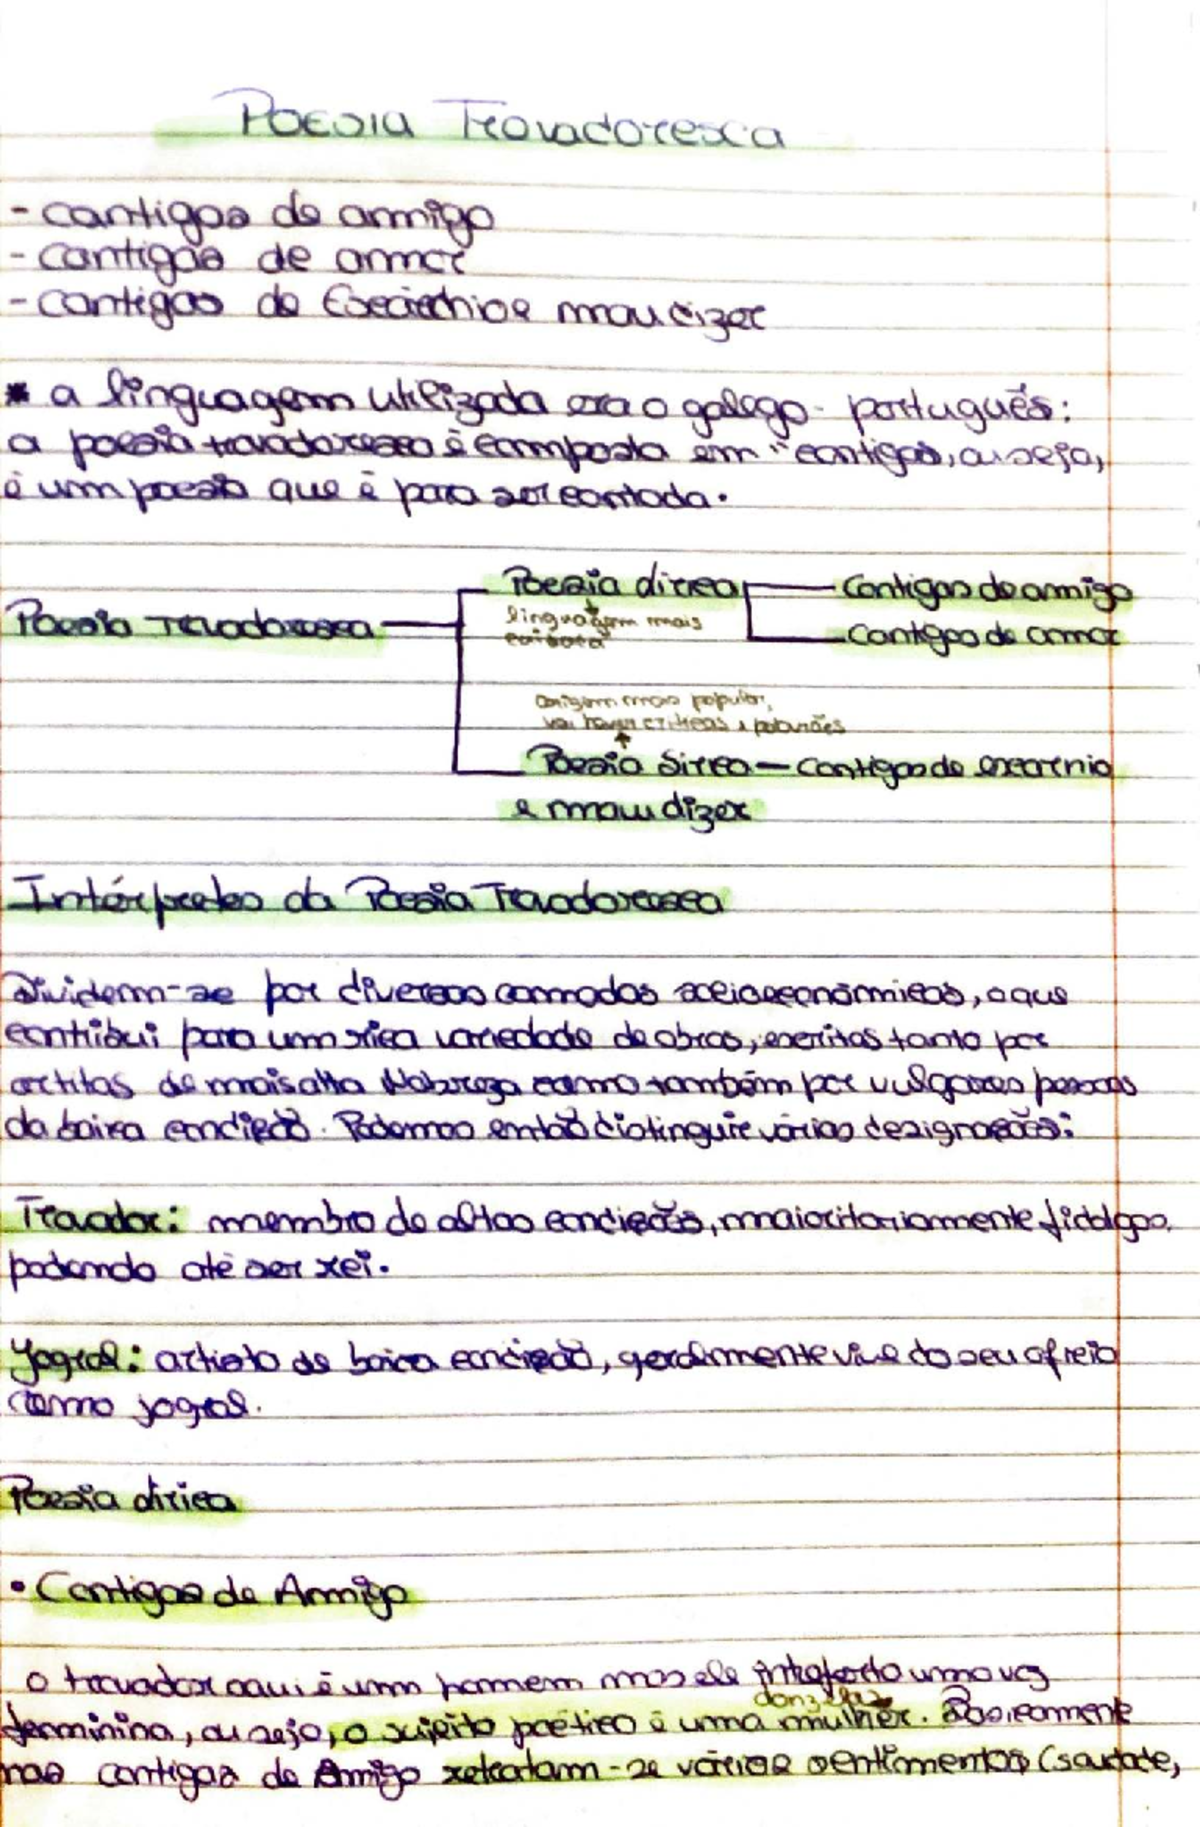 Poesia Trovadoresca
- cantigas de amigo
- cantigas de amor
- cantigas de Escárnio e maudizer
* a linguagem utilizada era o galego - português:
a poesia trovadoresca é composta em "cantigas, ou seja,
é um poesia que é para ser cantada.
Poesia dirica — Cantigas de amigo
Poesia Trovadoresca — linguagem mais cantigas de amor
origem mais popular,
vai haver críticas e palavrões
Poesia Sirica — cantigas de escárnio
e mau dizer
Intérpretes da Poesia Trovadoresca
Dividem-se por diversas camadas socioeconómicas, o que
contribui para um rica variedade de obras, escritas tanto por
artitas de mais alta Nobreza como também por vulgares pessoas
da baixa condição. Podemos então distinguir várias designações:
Trovador: membro de altas condições, maioritariamente fidalgos,
podendo até ser rei.
Jogral: artista de baixa condição, geralmente vive do seu ofreio
como jogral.
Poesia dirica
• Cantigas de Amigo
o trovador aqui é um homem mas ele uma voz
donzela
feminina, ou seja, o sujeito poético é uma mulher. Basicamente
nas cantigas de Amigo retratam-se vários sentimentos (saudade,